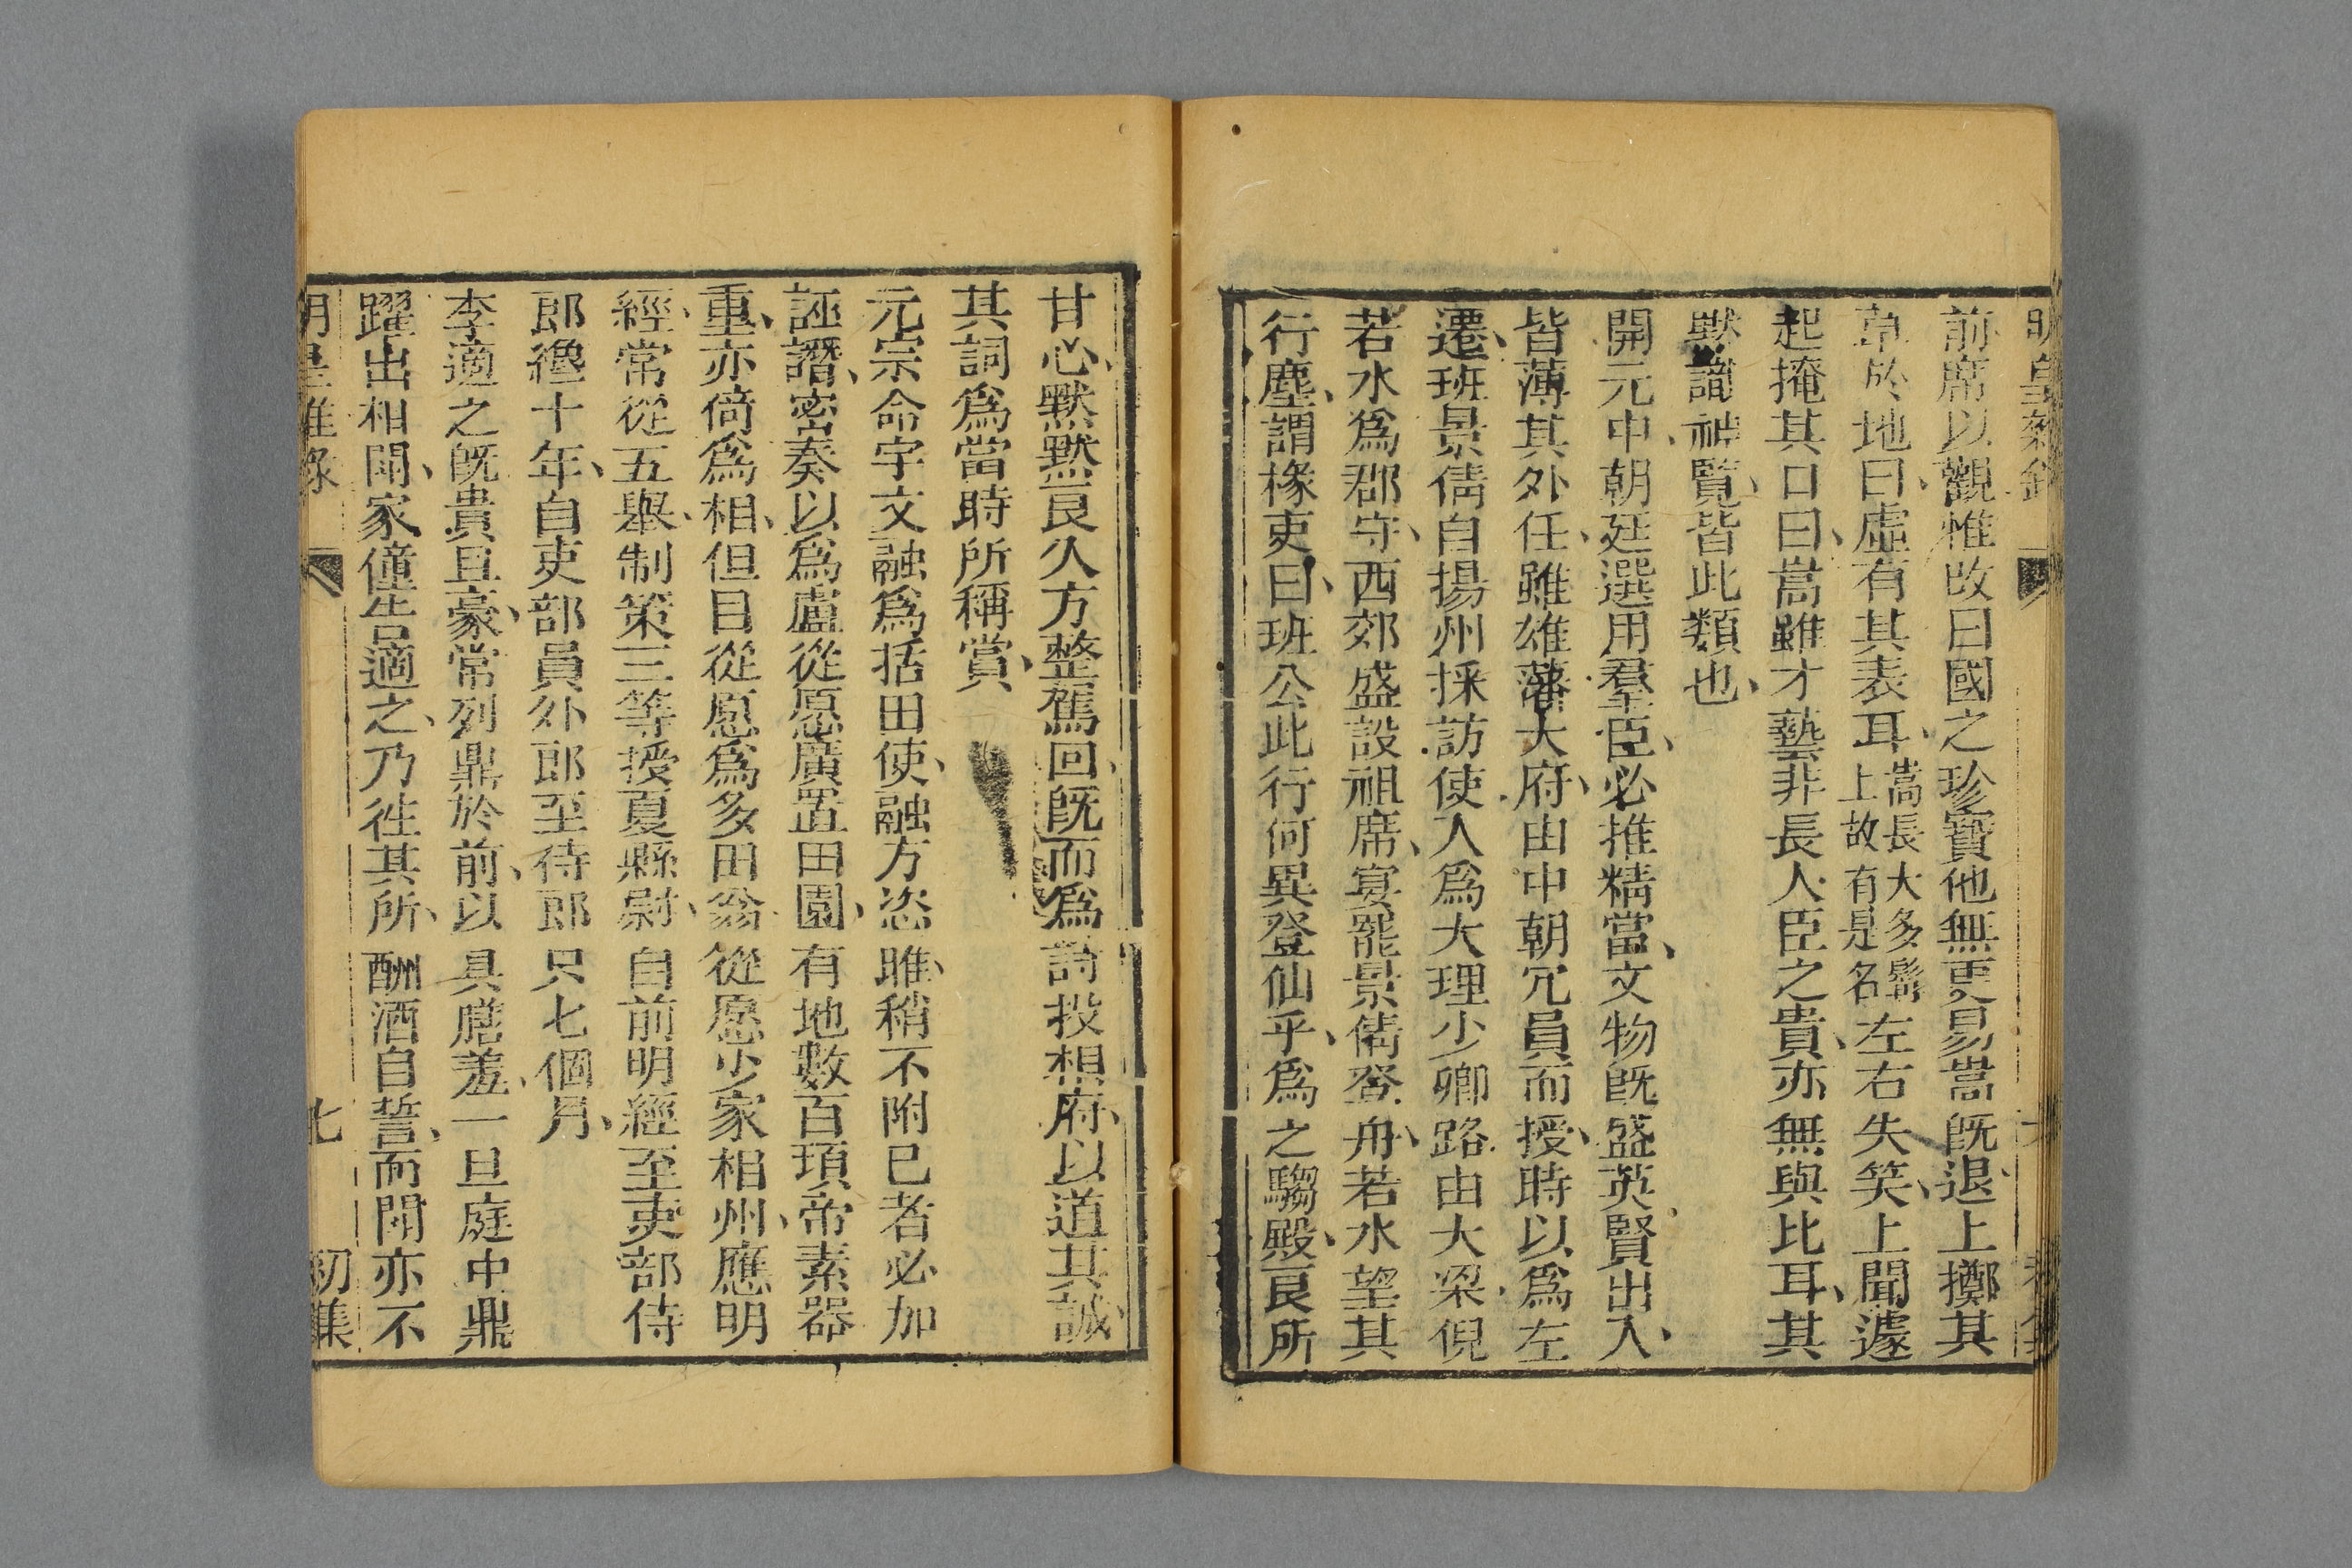 明皇雜錄
前席以觀惟改曰國之珍寶他無更易嵩既退上擲其
草於地曰虛有其表耳嵩長大多髯上故有是名左右失笑上聞遽
起掩其口曰嵩雖才藝非長人臣之貴亦無與比耳其
默識神覽皆此類也
開元中朝廷選用羣臣必推精當文物既盛英賢出入
皆薄其外任雖雄藩大府由中朝冗員而授時以爲左
遷班景倩自揚州採訪使入爲大理少卿路由大梁倪
若水爲郡守西郊盛設祖席宴罷景倩登舟若水望其
行塵謂椽吏曰班公此行何異登仙乎爲之騶殿良所
甘心默默良久方整駕回既而爲詩投相府以道其誠
其詞爲當時所稱賞
元宗命宇文融爲括田使融方恣睢稍不附已者必加
誣譖密奏以爲盧從愿廣置田園有地數百頃帝素器
重亦倚爲相但目從愿爲多田翁從愿少家相州應明
經常從五舉制策三等授夏縣尉自前明經至吏部侍
郎纔十年自吏部員外郎至待郎只七個月
李適之既貴且豪常列鼎於前以具膳羞一旦庭中鼎
躍出相鬬家僮告適之乃徃其所酬酒自誓而鬬亦不
明皇雜錄 七 初集